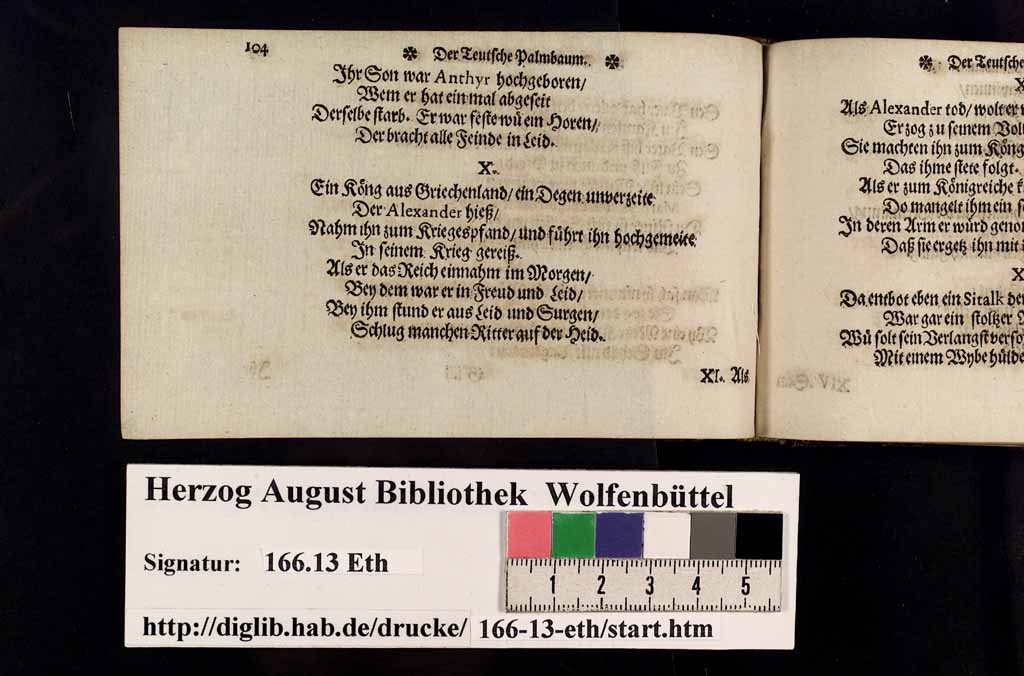 104
✽ Der Teutsche Palmbaum. ✽
Ihr Son war Anthyr hochgeboren/
Wem er hat ein mal abgeseit
Derselbe starb. Er war feste wü ein Horen/
Der bracht alle Feinde in Leid.
X.
Ein Köng aus Griechenland/ ein Degen unverzeite
Der Alexander hieß/
Nahm ihn zum Kriegespfand/ und führt ihn hochgemeite
In seinem Krieg gereiß.
Als er das Reich einnahm im Morgen/
Bey dem war er in Freud und Leid/
Bey ihm stund er aus Leid und Surgen/
Schlug manchen Ritter auf der Heid.
XI. Als
✽ Der Teutsche
Als Alexander tod/ wolt er
Er zog zu seinem
Sie machten ihn zum Köng
Das ihme stete folgt.
Als er zum Königreiche
Do mangelt ihm ein
In deren Arm er würd
Daß sie ergetz ihn mit
Da entbot eben ein Sitalk
War gar ein stoltzer
Wü solt sein Verlangst
Mit einem Wybe hülde
Herzog August Bibliothek Wolfenbüttel
Signatur: 166.13 Eth
1 2 3 4 5
http://diglib.hab.de/drucke/ 166-13-eth/start.htm